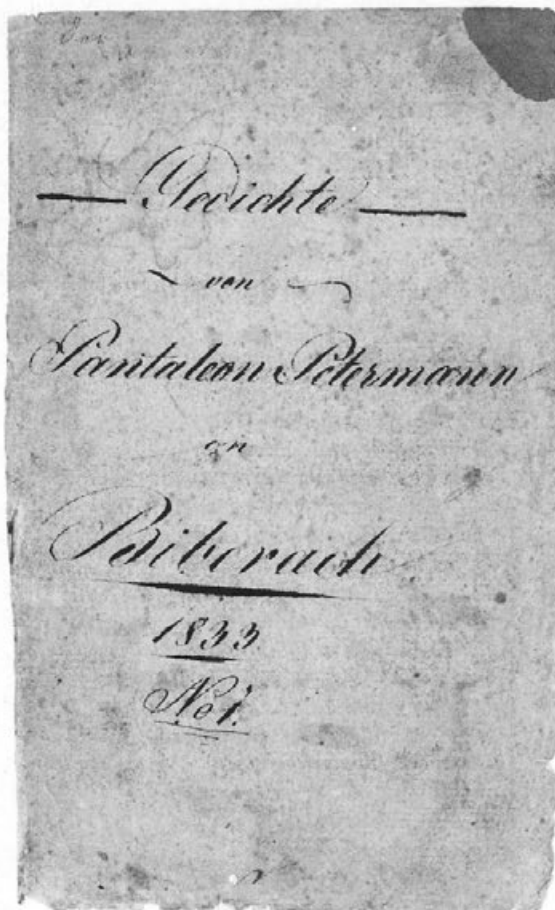 Gedichte
von
Pantaleon Petermann
Biberach
1833
No 1.